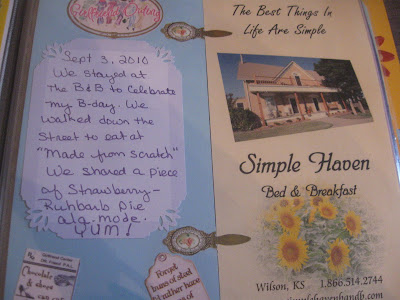 Sept 3, 2010
We Stayed at
The B&B to Celebrate
my B-day. We
walked down the
Street to eat at
"Made from scratch"
We shared a piece
of Strawberry-
Ruhbarb Pie
ala mode.
YUM!
Chocolate
& shoes
Forget
buses of steel
I'd rather have
The Best Things In
Life Are Simple
Simple Haven
Bed & Breakfast
Wilson, KS 1.866.514.2744